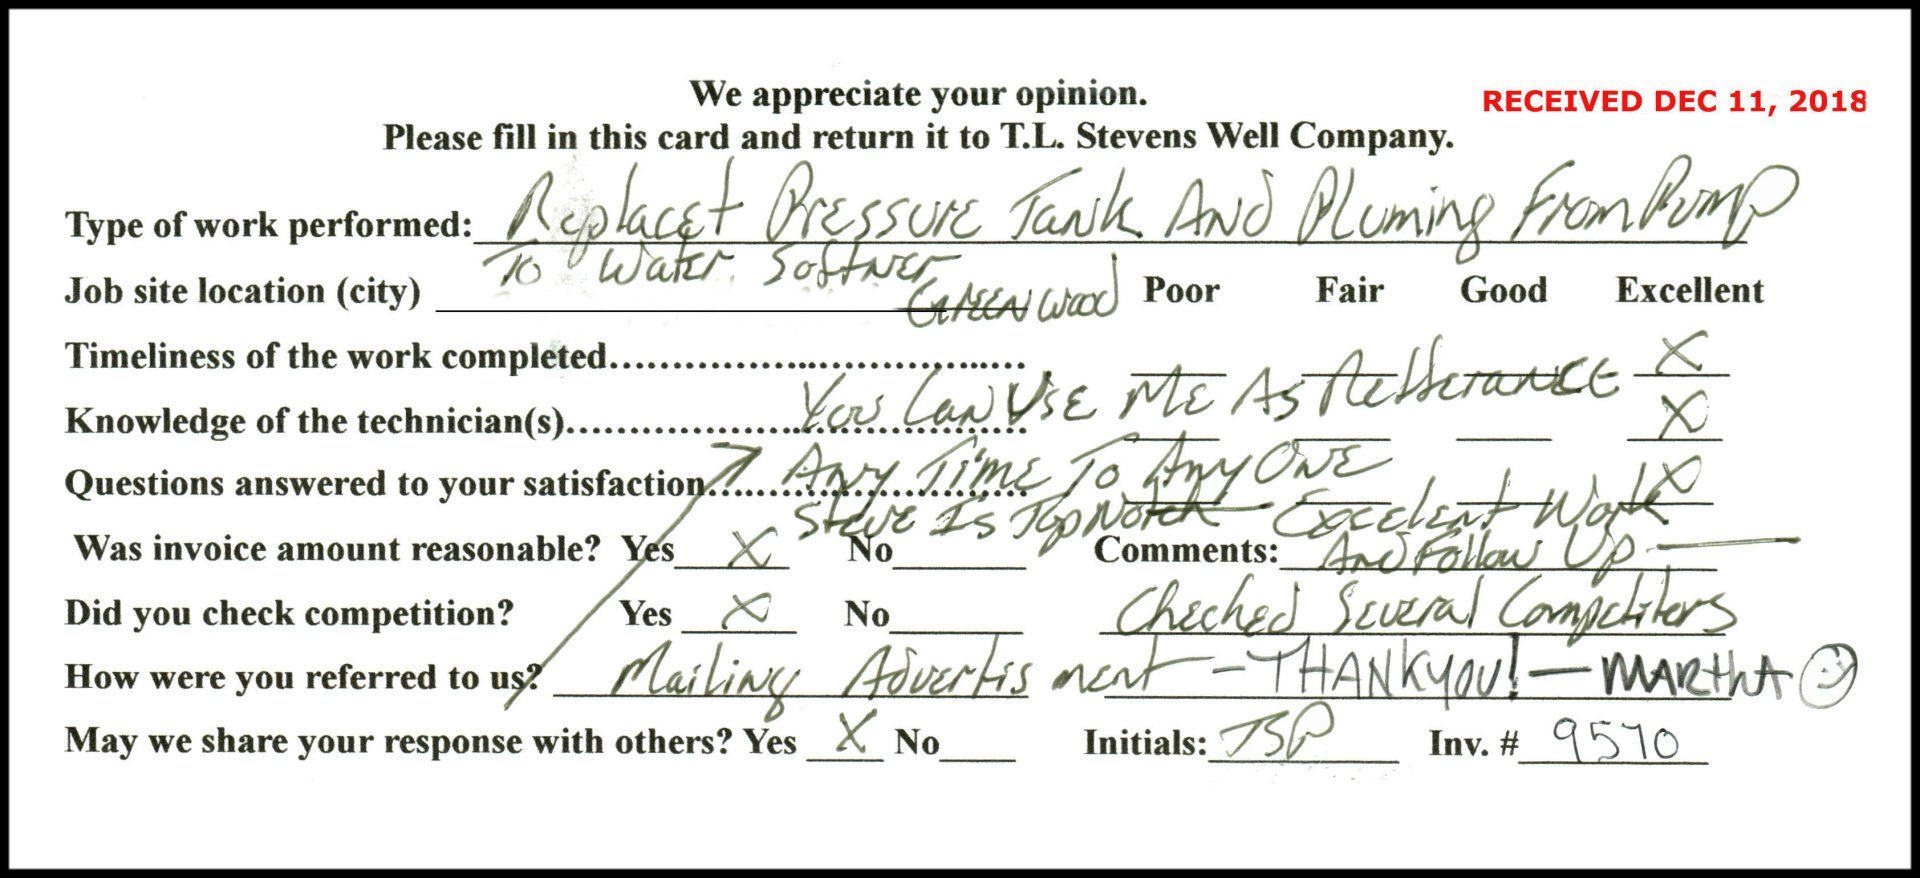 We appreciate your opinion.
RECEIVED DEC 11, 2018
Please fill in this card and return it to T.L. Stevens Well Company.
Type of work performed: Replacet Pressure Tank And Pluming From Pump
To Water Softner
Job site location (city) Greenwood Poor Fair Good Excellent
Timeliness of the work completed........................................ X
You Can Use Me As Refferance
Knowledge of the technician(s)........................................ X
Any Time To Any One
Questions answered to your satisfaction.............................. X
Steve Is Top Notch - Excelent Work
Was invoice amount reasonable? Yes X No Comments: And Follow Up
Did you check competition? Yes X No Checked Several Competitors
How were you referred to us? Mailing Advertisment - THANKYOU! - MARTHA
May we share your response with others? Yes X No Initials: JSP Inv. # 9570